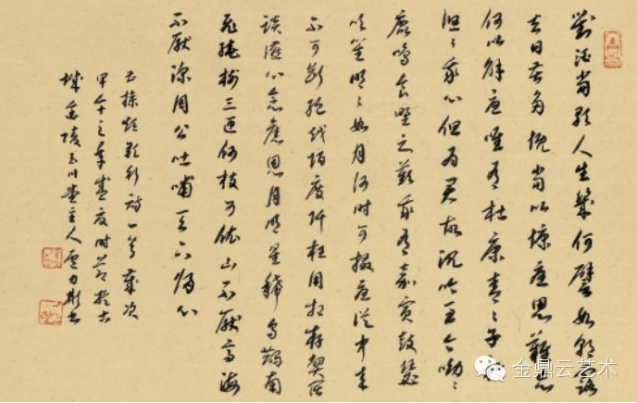 對酒當歌人生幾何譬如朝露
去日苦多慨當以慷憂思難忘
何以解憂唯有杜康青々子衿
悠々我心但為君故沉吟至今呦々
鹿鳴食野之苹我有嘉賓鼓瑟
吹笙明々如月何時可掇憂從中來
不可斷絕越陌度阡枉用相存契闊
談讌心念舊恩月明星稀烏鵲南
飛繞樹三匝何枝可依山不厭高海
不厭深周公吐哺天下歸心
曹操短歌行詩一首歲次
甲午之年夏時節於古
城金陵主人書
金鼎云艺术